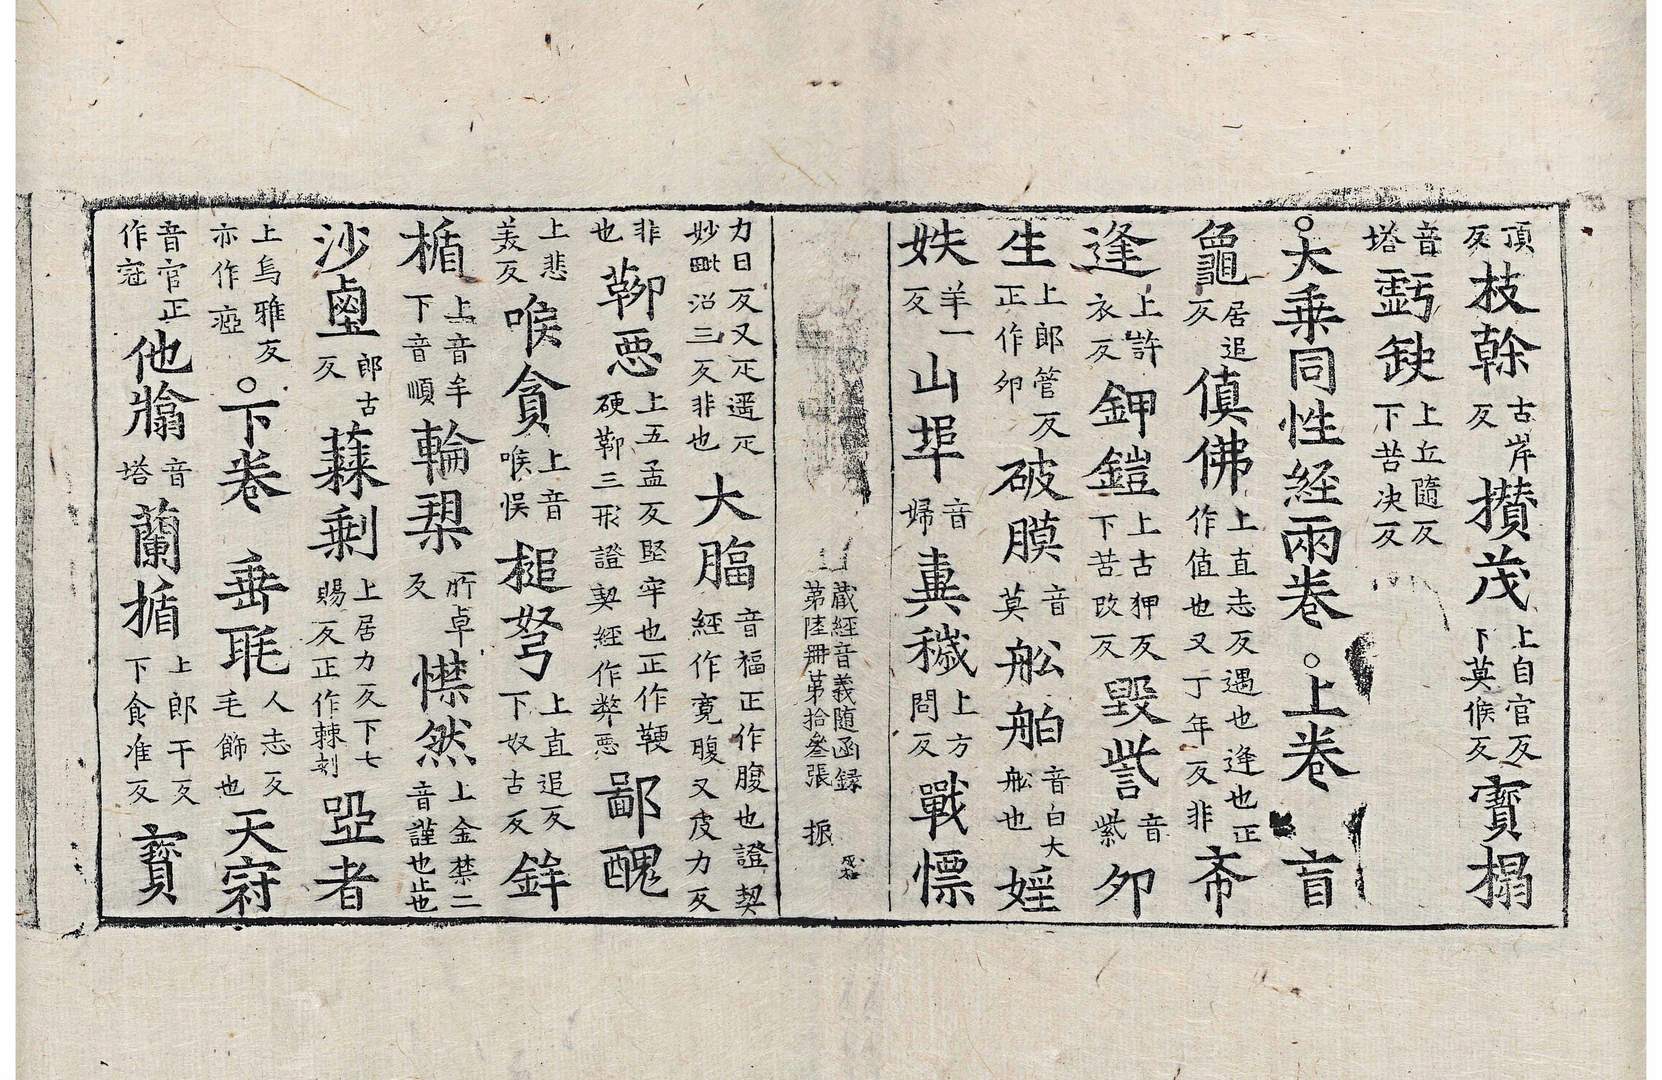 頂反枝幹古岸反攢茂上自官反下莫候反寶榻
音塔虧缺上丘隨反下苦决反
○大乗同性經兩卷○上卷盲
龜居追反傎佛上直志反遇也逢也正作值也又丁年反非帝
逢上許衣反鉀鎧上古狎反下苦改反毀訾音紫夘
生上郎管反正作卵破膜音莫舩舶音白大舩也婬
妷羊一反山埠音婦糞穢上方問反戰慓
藏經音義随函録
第陸冊第拾叄張 振
力日反又疋遥疋妙毗沼三反非也大腷音福正作腹也證契經作寛腹又皮力反
非也鞕惡上五孟反堅牢也正作鞕硬鞕三形證契經作弊惡鄙醜
上悲美反喉貪上音喉悮槌弩上直追反下奴古反鉾
楯上音牟下音順輪槊所卓反㦗然上金禁二音謹也止也
沙鹵郎古反蕀剌上居力反下七賜反正作棘刾啞者
上烏雅反亦作瘂○下卷垂毦人志反毛飾也天冠
音官正作冠他㩉音塔蘭楯上郎干反下食准反寶